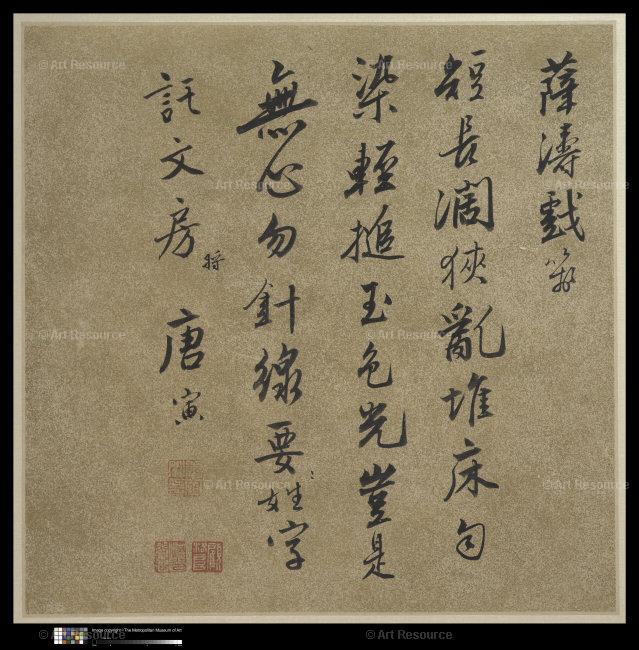 薛濤戲箋
短長濶狹亂堆床匀
染輕搥玉色光豈是
無心勿針線要姓字
託文房 將 唐寅
© Art Resource
Image copyright | The Metropolitan Museum of Art
© Art Resource